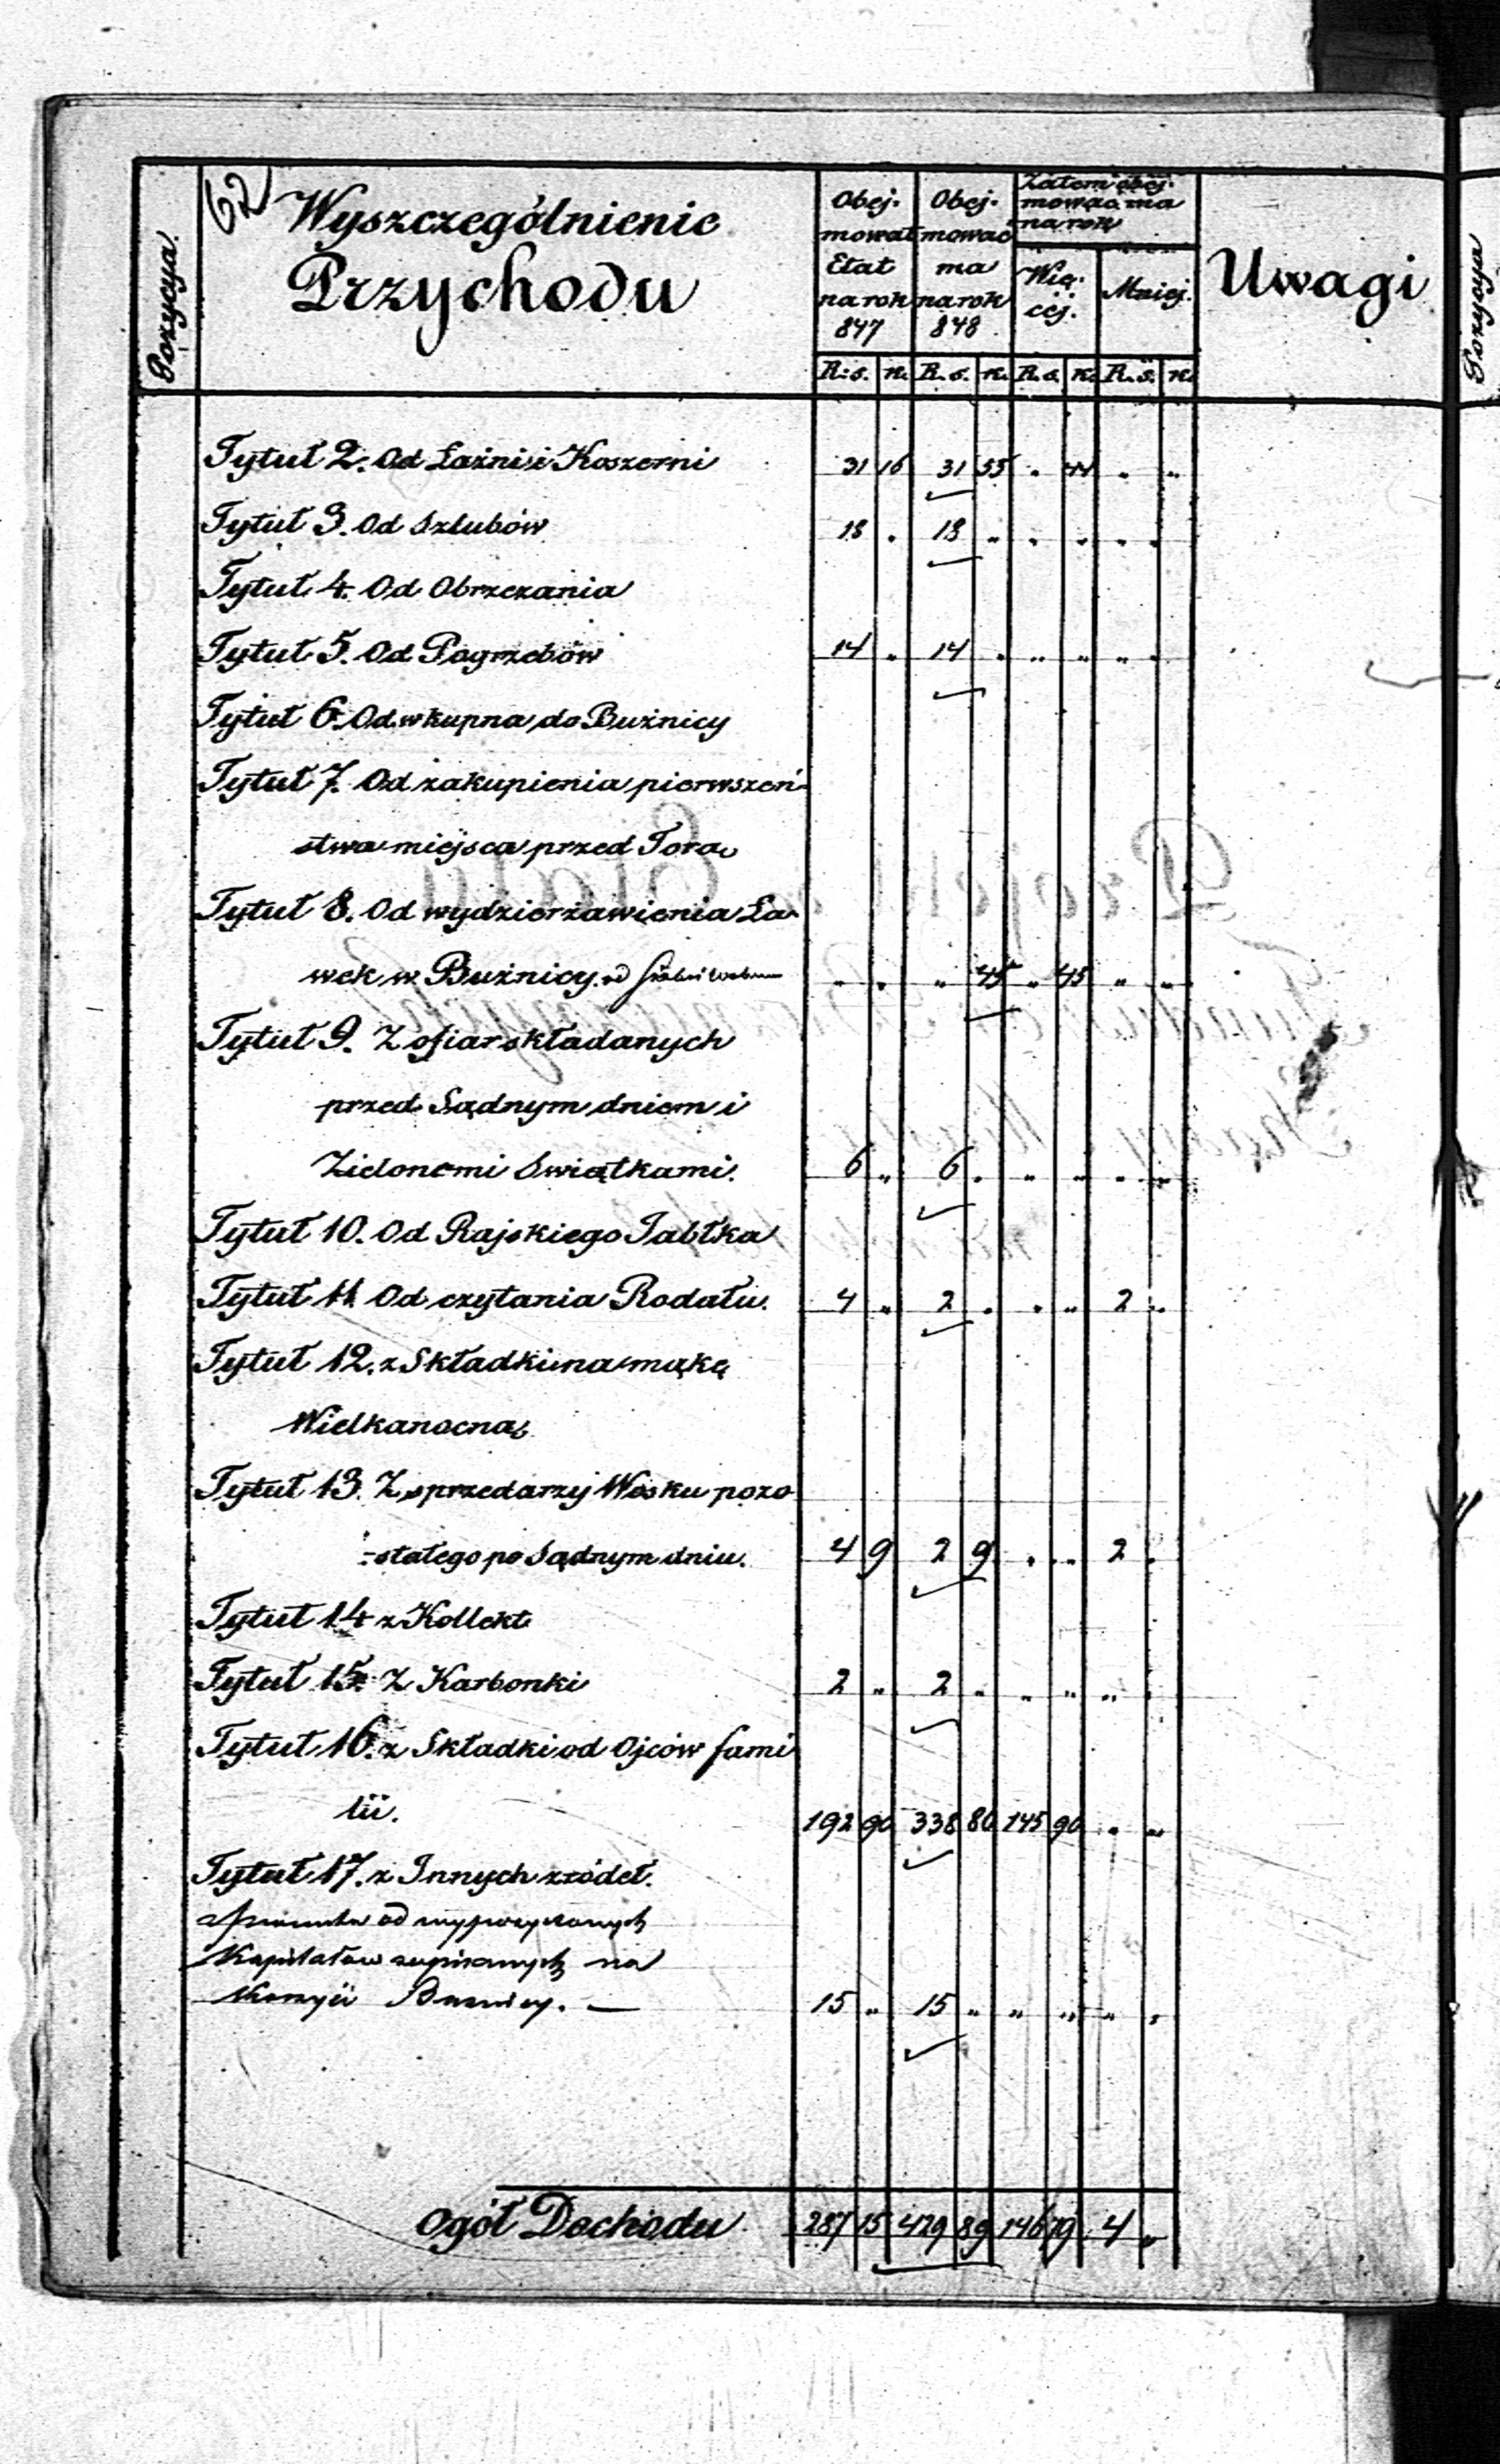 62
Pozycya.
Wyszczególnienie
Przychodu
Obej-
mował
Etat
na rok
847
Obej-
mować
ma
na rok
848
Zatem obej-
mować ma
na rok
Wię-
cej.
Mniej.
Uwagi
R. s. k. R. s. k. R. s. k. R. s. k.
Tytuł 2. Od Łaźni i Koszerni 31 16 31 55 " 44 " "
Tytuł 3. Od Szlubów 18 " 18 " " " " "
Tytuł 4. Od Obrzezania
Tytuł 5. Od Pogrzebów 14 " 14 " " " " "
Tytuł 6. Od wkupna do Bużnicy
Tytuł 7. Od zakupienia pierwszeń-
stwa miejsca przed Torą
Tytuł 8. Od wydzierżawienia Ła-
wek w Bużnicy od " " " 45 " 45 " "
Tytuł 9. Z ofiar składanych
przed Sądnym dniem i
Zielonemi Swiątkami. 6 " 6 " " " " "
Tytuł 10. Od Rajskiego Jabłka
Tytuł 11. Od czytania Rodału. 4 " 2 " " " 2 "
Tytuł 12. z Składki na mąkę
Wielkanocną
Tytuł 13. Z sprzedarzy Wosku pozo
-stałego po Sądnym dniu. 4 9 2 9 " " 2 "
Tytuł 14 z Kollekt
Tytuł 15. Z Karbonki 2 " 2 " " " " "
Tytuł 16. z Składki od Ojców fami
lii. 192 90 338 80 145 90 " "
Tytuł 17. z Innych zródeł.
od wypożyczonych
Kapitałów zapisanych na
Korzyść Bużnicy. — 15 " 15 " " " " "
Ogół Dochodu 287 15 429 89 146 79 4 "
Pozycya